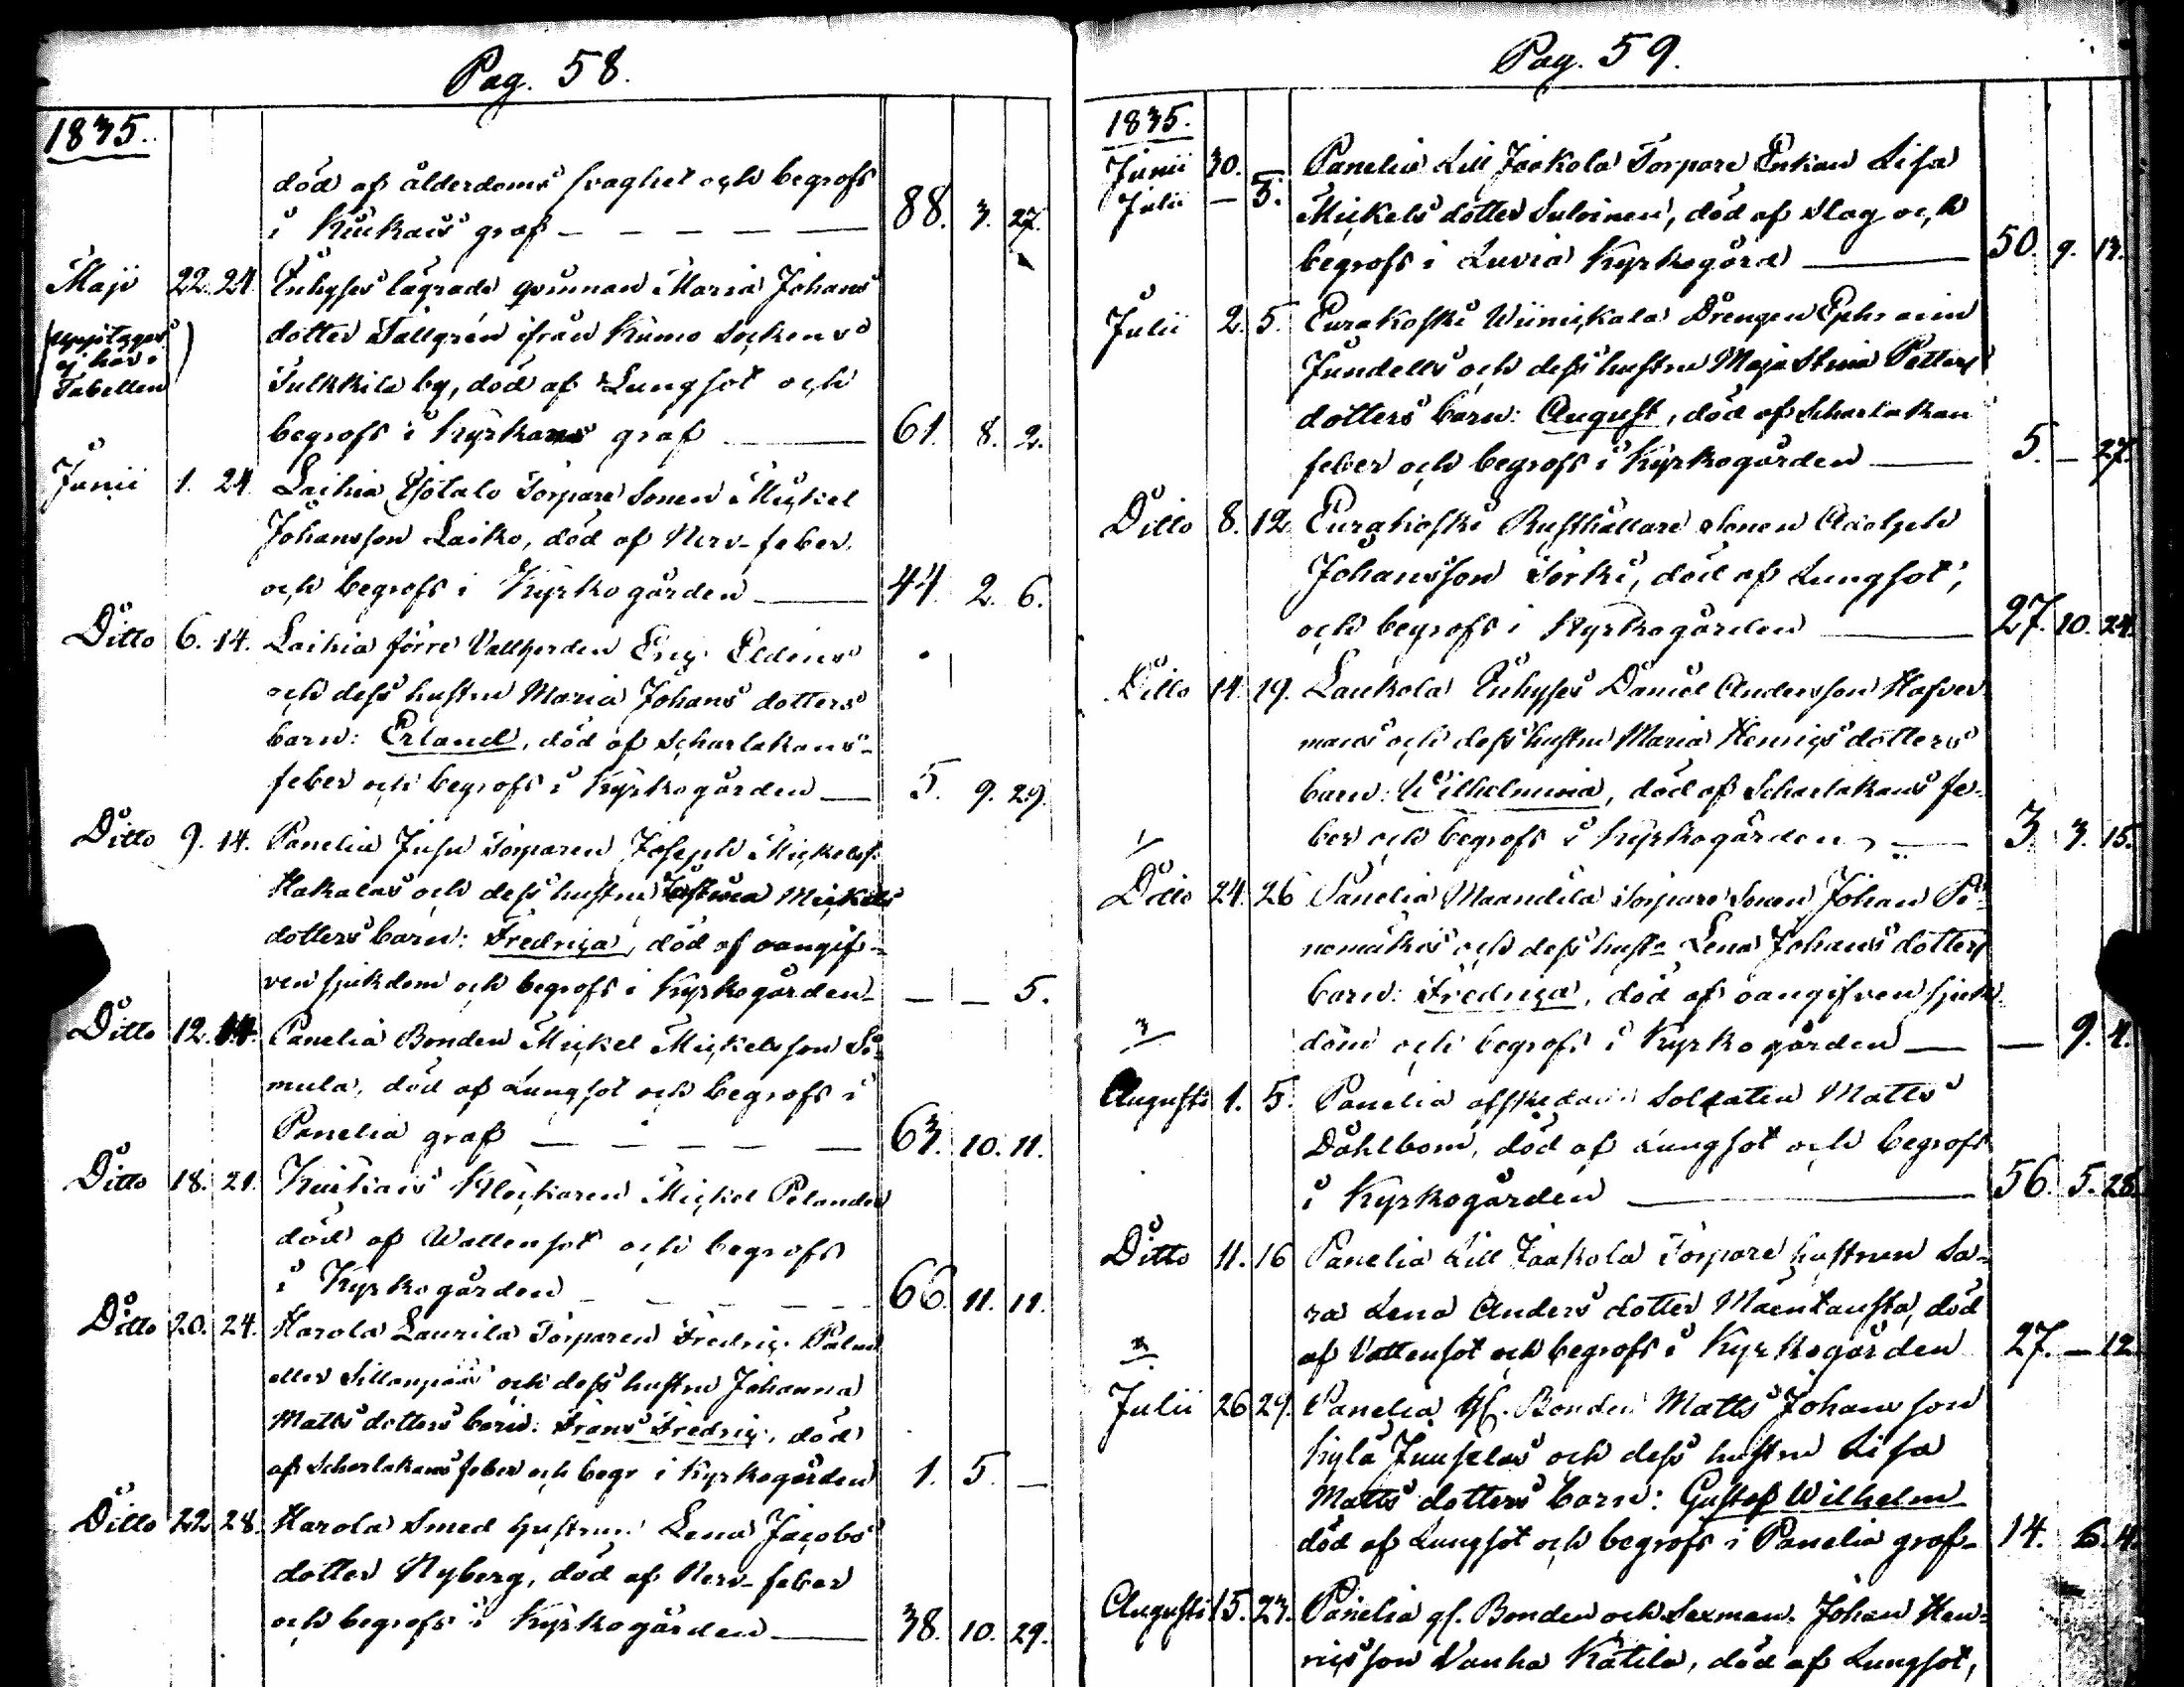 Pag. 58.
1835.
död af ålderdoms svaghet och begrofs
i Kiukais graf — — — — — 88. 3. 27.
Maji 22. 24. Inhyses lägrade qvinnan Maria Johans
(upptages dotter Tallgrén ifrån Kumo Sockens
ej här i Sulkkila by, död af Lungsot och
Tabellen) begrofs i Kyrkans graf — 61. 8. 2.
Junii 1. 24. Laihia Ojotalo Torpare Sonen Mickel
Johansson Laiko, död af Nerv-feber
och begrofs i Kyrkogården — 44 2. 6.
Ditto 6. 14. Laihia förre Vallherden Eric Eldins
och dess hustru Maria Johans dotters
barn: Erland, död af Scharlakans-
feber och begrofs i Kyrkogården — 5. 9. 29.
Ditto 9. 14. Panelia Jusu Torparen Joseph Mickelss.
Hakalas och dess hustru Justina Mickels
dotters barn: Fredrica, död af oangif-
ven sjukdom och begrofs i Kyrkogården — — — 5.
Ditto 12. 14. Panelia Bonden Mickel Mickelsson Si-
mula, död af Lungsot och begrofs i
Panelia graf — — — — — 63. 10. 11.
Ditto 18. 21. Kiukais Klockaren Mickel Pelander
död af Wattensot och begrofs
i Kyrkogården — — — — — 66. 11. 11.
Ditto 20. 24. Harola Laurila Torparen Fredric Palm
eller Sillanpää och dess hustru Johanna
Matts dotters barn: Frans Fredric, död
af Scharlakans feber och begr i Kyrkogården 1. 5. —
Ditto 22. 28. Harola Smed hustrun Lena Jacobs
dotter Nyberg, död af Nerv-feber
och begrofs i Kyrkogården — 38. 10. 29.
Pag. 59.
1835.
Junii 30. — Panelia Lill Jaakola Torpare Enkan Lisa
Julii — 5. Mickels dotter Suloinen, död af Slag och
begrofs i Luvia Kyrkogård — 50. 9. 13.
Julii 2. 5. Eurakoski Wiinickala Drengen Ephraim
Jundells och dess hustru Maja Stina Petters
dotters barn: August, död af Scharlakan
feber och begrofs i Kyrkogården — 5. — 27.
Ditto 8. 12 Eurakoski Rusthållare Sonen Adolph
Johansson Torki, död af Lungsot,
och begrofs i Kyrkogården — 27. 10. 24.
Ditto 14. 19. Laukola Inhyses Daniel Andersson Hafver
mans och dess hustru Maria Henrics dotters
barn: Wilhelmina, död af Scharlakans fe-
ber och begrofs i Kyrkogården — 3. 3. 15.
Ditto 24. 26 Panelia Maandila Torpare Sonen Johan Pi-
nomäkis och dess hustr. Lena Johans dotters
barn: Fredrica, död af oangifven sjuk
dom och begrofs i Kyrkogården — — 9. 4.
Augusti 1. 5. Panelia afskedade Soldaten Matts
Dahlbom, död af Lungsot och begrofs
i Kyrkogården — 56. 5. 28.
Ditto 11. 16 Panelia Lill Jaakola Torpare hustrun Sa-
ra Lena Anders dotter Mäentausta, död
af Vattensot och begrofs i Kyrkogården 27. — 12.
Julii 26 29. Panelia gl. Bonden Matts Johansson
Kylä Junselas och dess hustru Lisa
Matts dotters barn: Gustaf Wilhelm
död af Lungsot och begrofs i Panelia graf — 14. 6. 4.
Augusti 15. 23. Panelia gl. Bonden och Sexman. Johan Hen-
ricsson Vanha Katila, död af Lungsot,